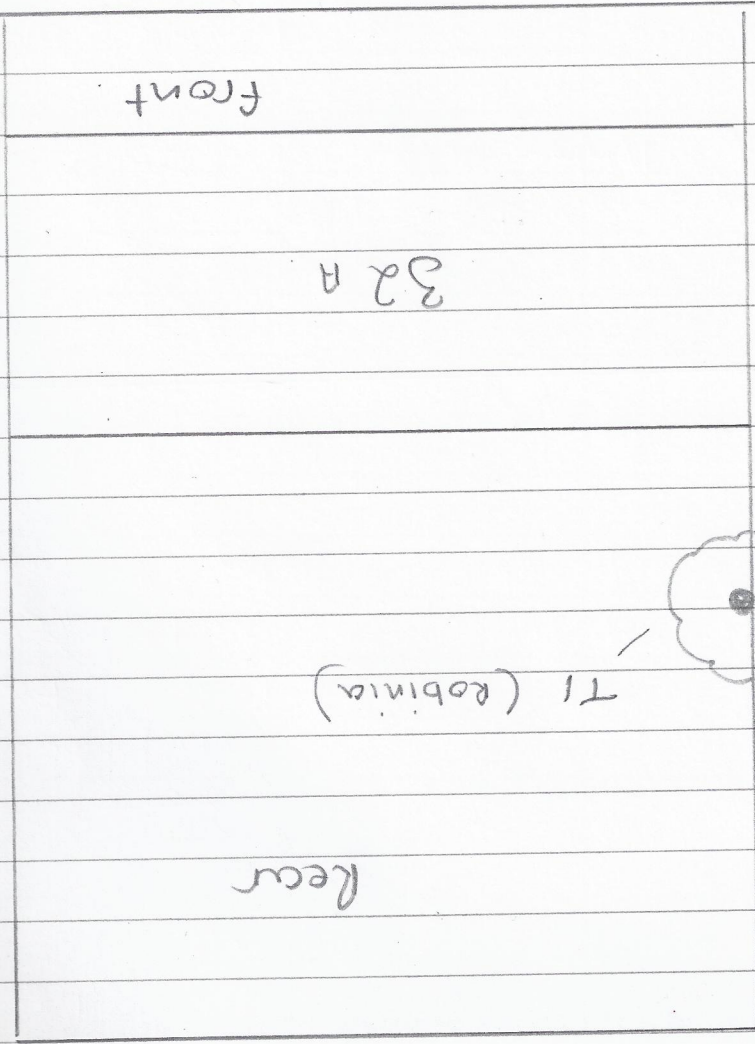 Rear
T1 (Robinia)
32A
Front